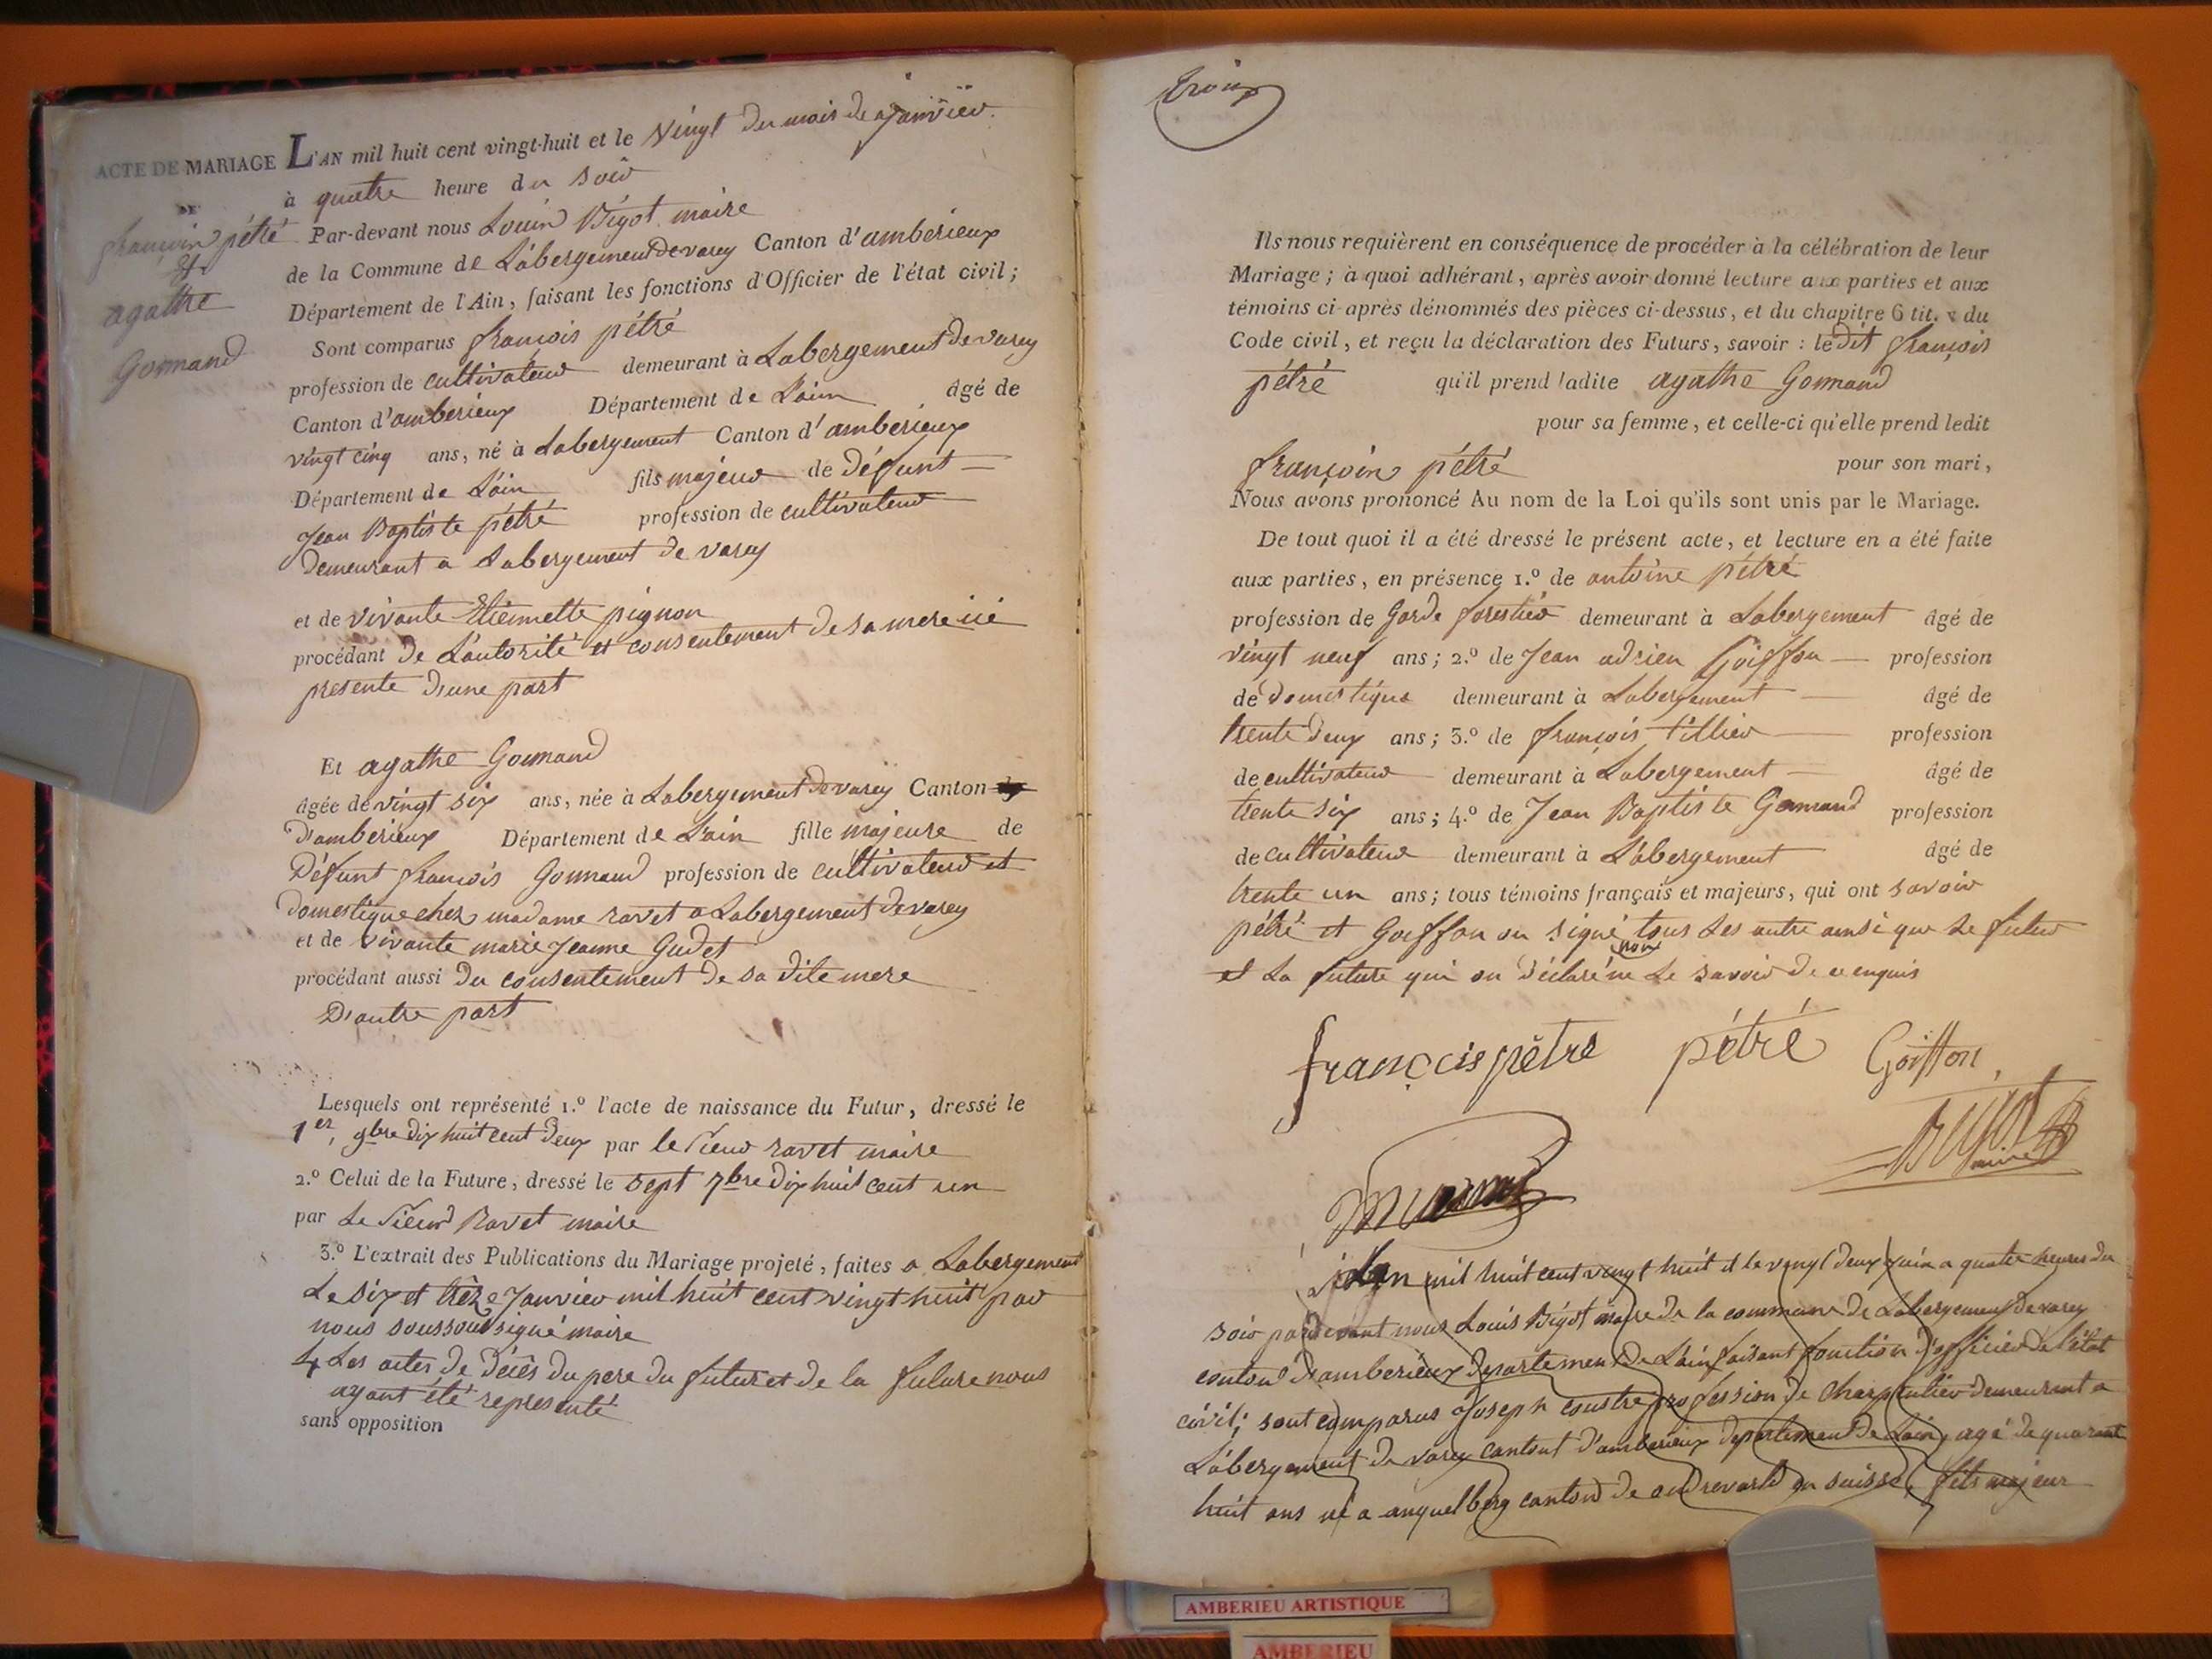 ACTE DE MARIAGE L'AN mil huit cent vingt-huit et le vingt du mois de janvier
à quatre heure du soir
DE
françois pétré
Et
agathe
Gonnand
Par-devant nous Louis Bigot maire
de la Commune de Labergement de varey Canton d'amberieux
Département de l'Ain, faisant les fonctions d'Officier de l'état civil;
Sont comparus françois pétré
profession de cultivateur demeurant à Labergement de varey
Canton d'amberieux Département de L'ain âgé de
vingt cinq ans, né à Labergement Canton d'amberieux
Département de L'ain fils majeur de défunt
Jean Baptiste pétré profession de cultivateur
demeurant a Labergement de varey
et de vivante Etiennette pignon
procédant de L'autorité et consentement de sa mere ici
presente d'une part
Et agathe Gonnand
âgée de vingt six ans, née à Labergement de varey Canton
d'amberieux Département de L'ain fille majeure de
Défunt françois Gonnand profession de cultivateur et
domestique chez madame ravet a Labergement de varey
et de vivante marie Jeanne Gudet
procédant aussi du consentement de sa dite mere
D'autre part
Lesquels ont représenté 1.º l'acte de naissance du Futur, dressé le
1er, 9bre dix huit cent deux par le Sieur ravet maire
2.º Celui de la Future, dressé le sept 7bre dix huit cent un
par Le Sieur Ravet maire
3.º L'extrait des Publications du Mariage projeté, faites a Labergement
Le six et treize Janvier mil huit cent vingt huit par
nous soussousigné maire
4 Les actes de décès du pere du futur et de la future nous
ayant été representé
sans opposition
trois
Ils nous requièrent en conséquence de procéder à la célébration de leur
Mariage; à quoi adhérant, après avoir donné lecture aux parties et aux
témoins ci-après dénommés des pièces ci-dessus, et du chapitre 6 tit. v du
Code civil, et reçu la déclaration des Futurs, savoir : le dit françois
pétré qu'il prend ladite agathe Gonnand
pour sa femme, et celle-ci qu'elle prend ledit
françois pétré pour son mari,
Nous avons prononcé Au nom de la Loi qu'ils sont unis par le Mariage.
De tout quoi il a été dressé le présent acte, et lecture en a été faite
aux parties, en présence 1.º de antoine pétré
profession de Garde forestier demeurant à Labergement âgé de
vingt neuf ans; 2.º de Jean adrien Goiffon profession
de domestique demeurant à Labergement âgé de
trente deux ans; 3.º de françois tillier profession
de cultivateur demeurant à Labergement âgé de
trente six ans; 4.º de Jean Baptiste Gonnand profession
de cultivateur demeurant à Labergement âgé de
trente un ans; tous témoins français et majeurs, qui ont savoir
pétré et Goiffon on signé tous Les autre ainsi que Le futur
non
et La future qui on déclaré ne Le savoir de ce enquis
françois pétre pétré Goiffon
Bigot
maire
L'an mil huit cent vingt huit et le vingt deux juin a quatre heures du
soir par devant nous Louis Bigot maire de la commune de Labergement de varey
canton d'amberieux departement de L'ain faisant fonction d'officier de l'état
civil; sont comparus Joseph coustre profession de charpentier demeurant a
Labergement de varey cantont d'amberieux departement de Lain, agé de quarant
huit ans né a anquelberg canton de en suisse, fils majeur
AMBERIEU ARTISTIQUE
AMBERIEU